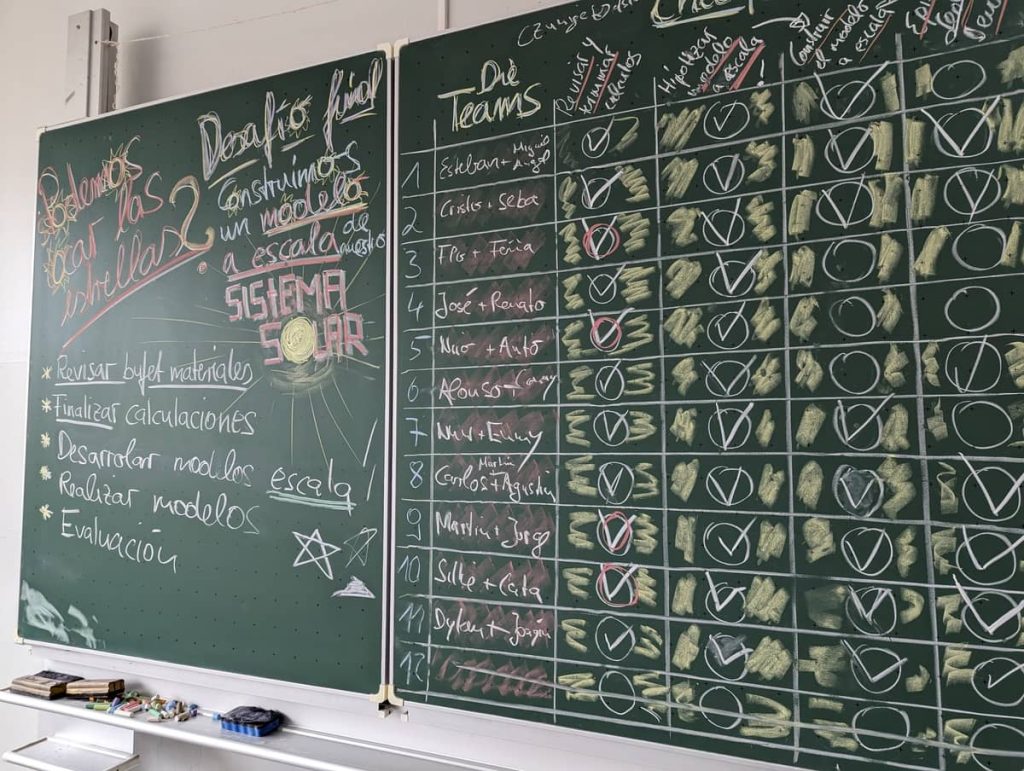 Podemos
las
estrellas?
Desafío final
Construimos
un modelo
a escala de
SISTEMA
SOLAR
* Revisar bufet materiales
* Finalizar calculaciones
* Desarrolar modelos escala!
* Realizar modelos
* Evaluación
Die
Teams
Check
Revisar y
terminar
Hipoltizar
modelo
a escala
!
Construir
el modelo
a escala
1 Esteban + Miguel
Angel
2 + Seba
3
4 José + Renato
5 + Anto
6 Afonso +
7 + Emmy
8 Carlos + Agustin
Martin
9 Martin + Jorge
10 Silke + Cata
11 Dylan + Joaquin
12